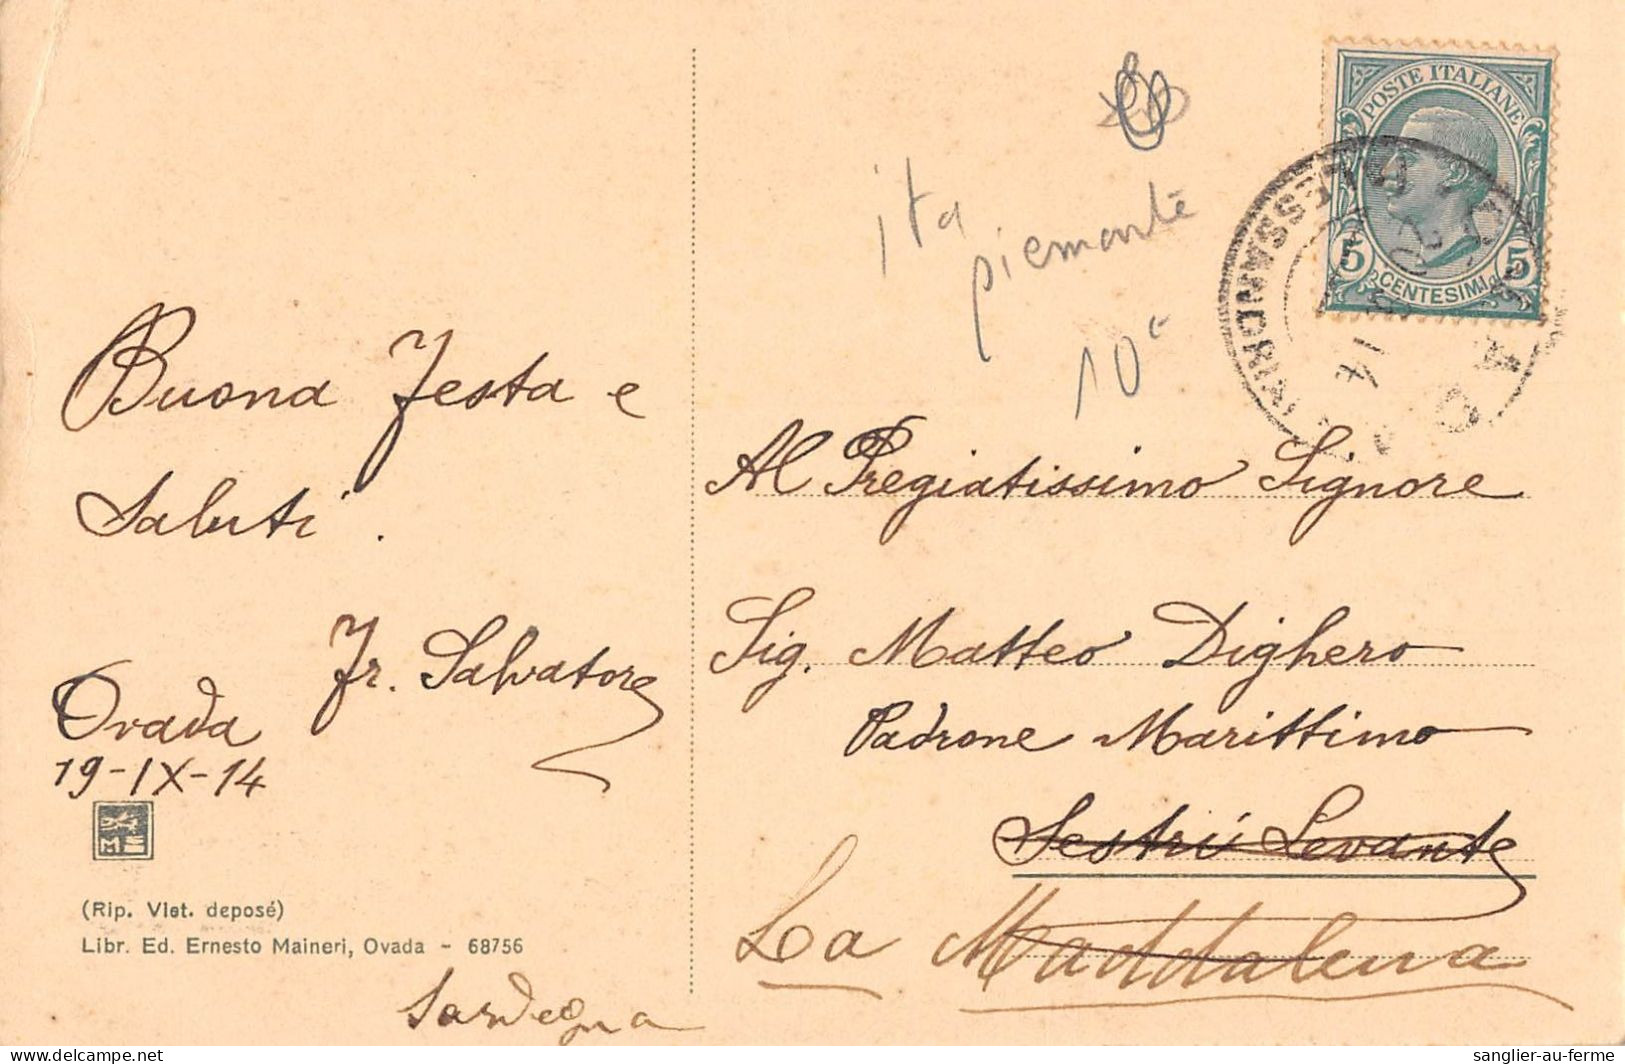 Buona Festa e
Saluti.
Fr. Salvatore
Ovada
19-IX-14
ME
(Rip. Viet. deposé)
Libr. Ed. Ernesto Maineri, Ovada - 68756
Sardegna
ita
piemonte
10€
POSTE ITALIANE
5 CENTESIMI 5
ALESSANDRIA
14
Al Pregiatissimo Signore
Sig. Matteo Dighero
Padrone Marittimo
Sestri Levante
La Maddalena
sanglier-au-ferme